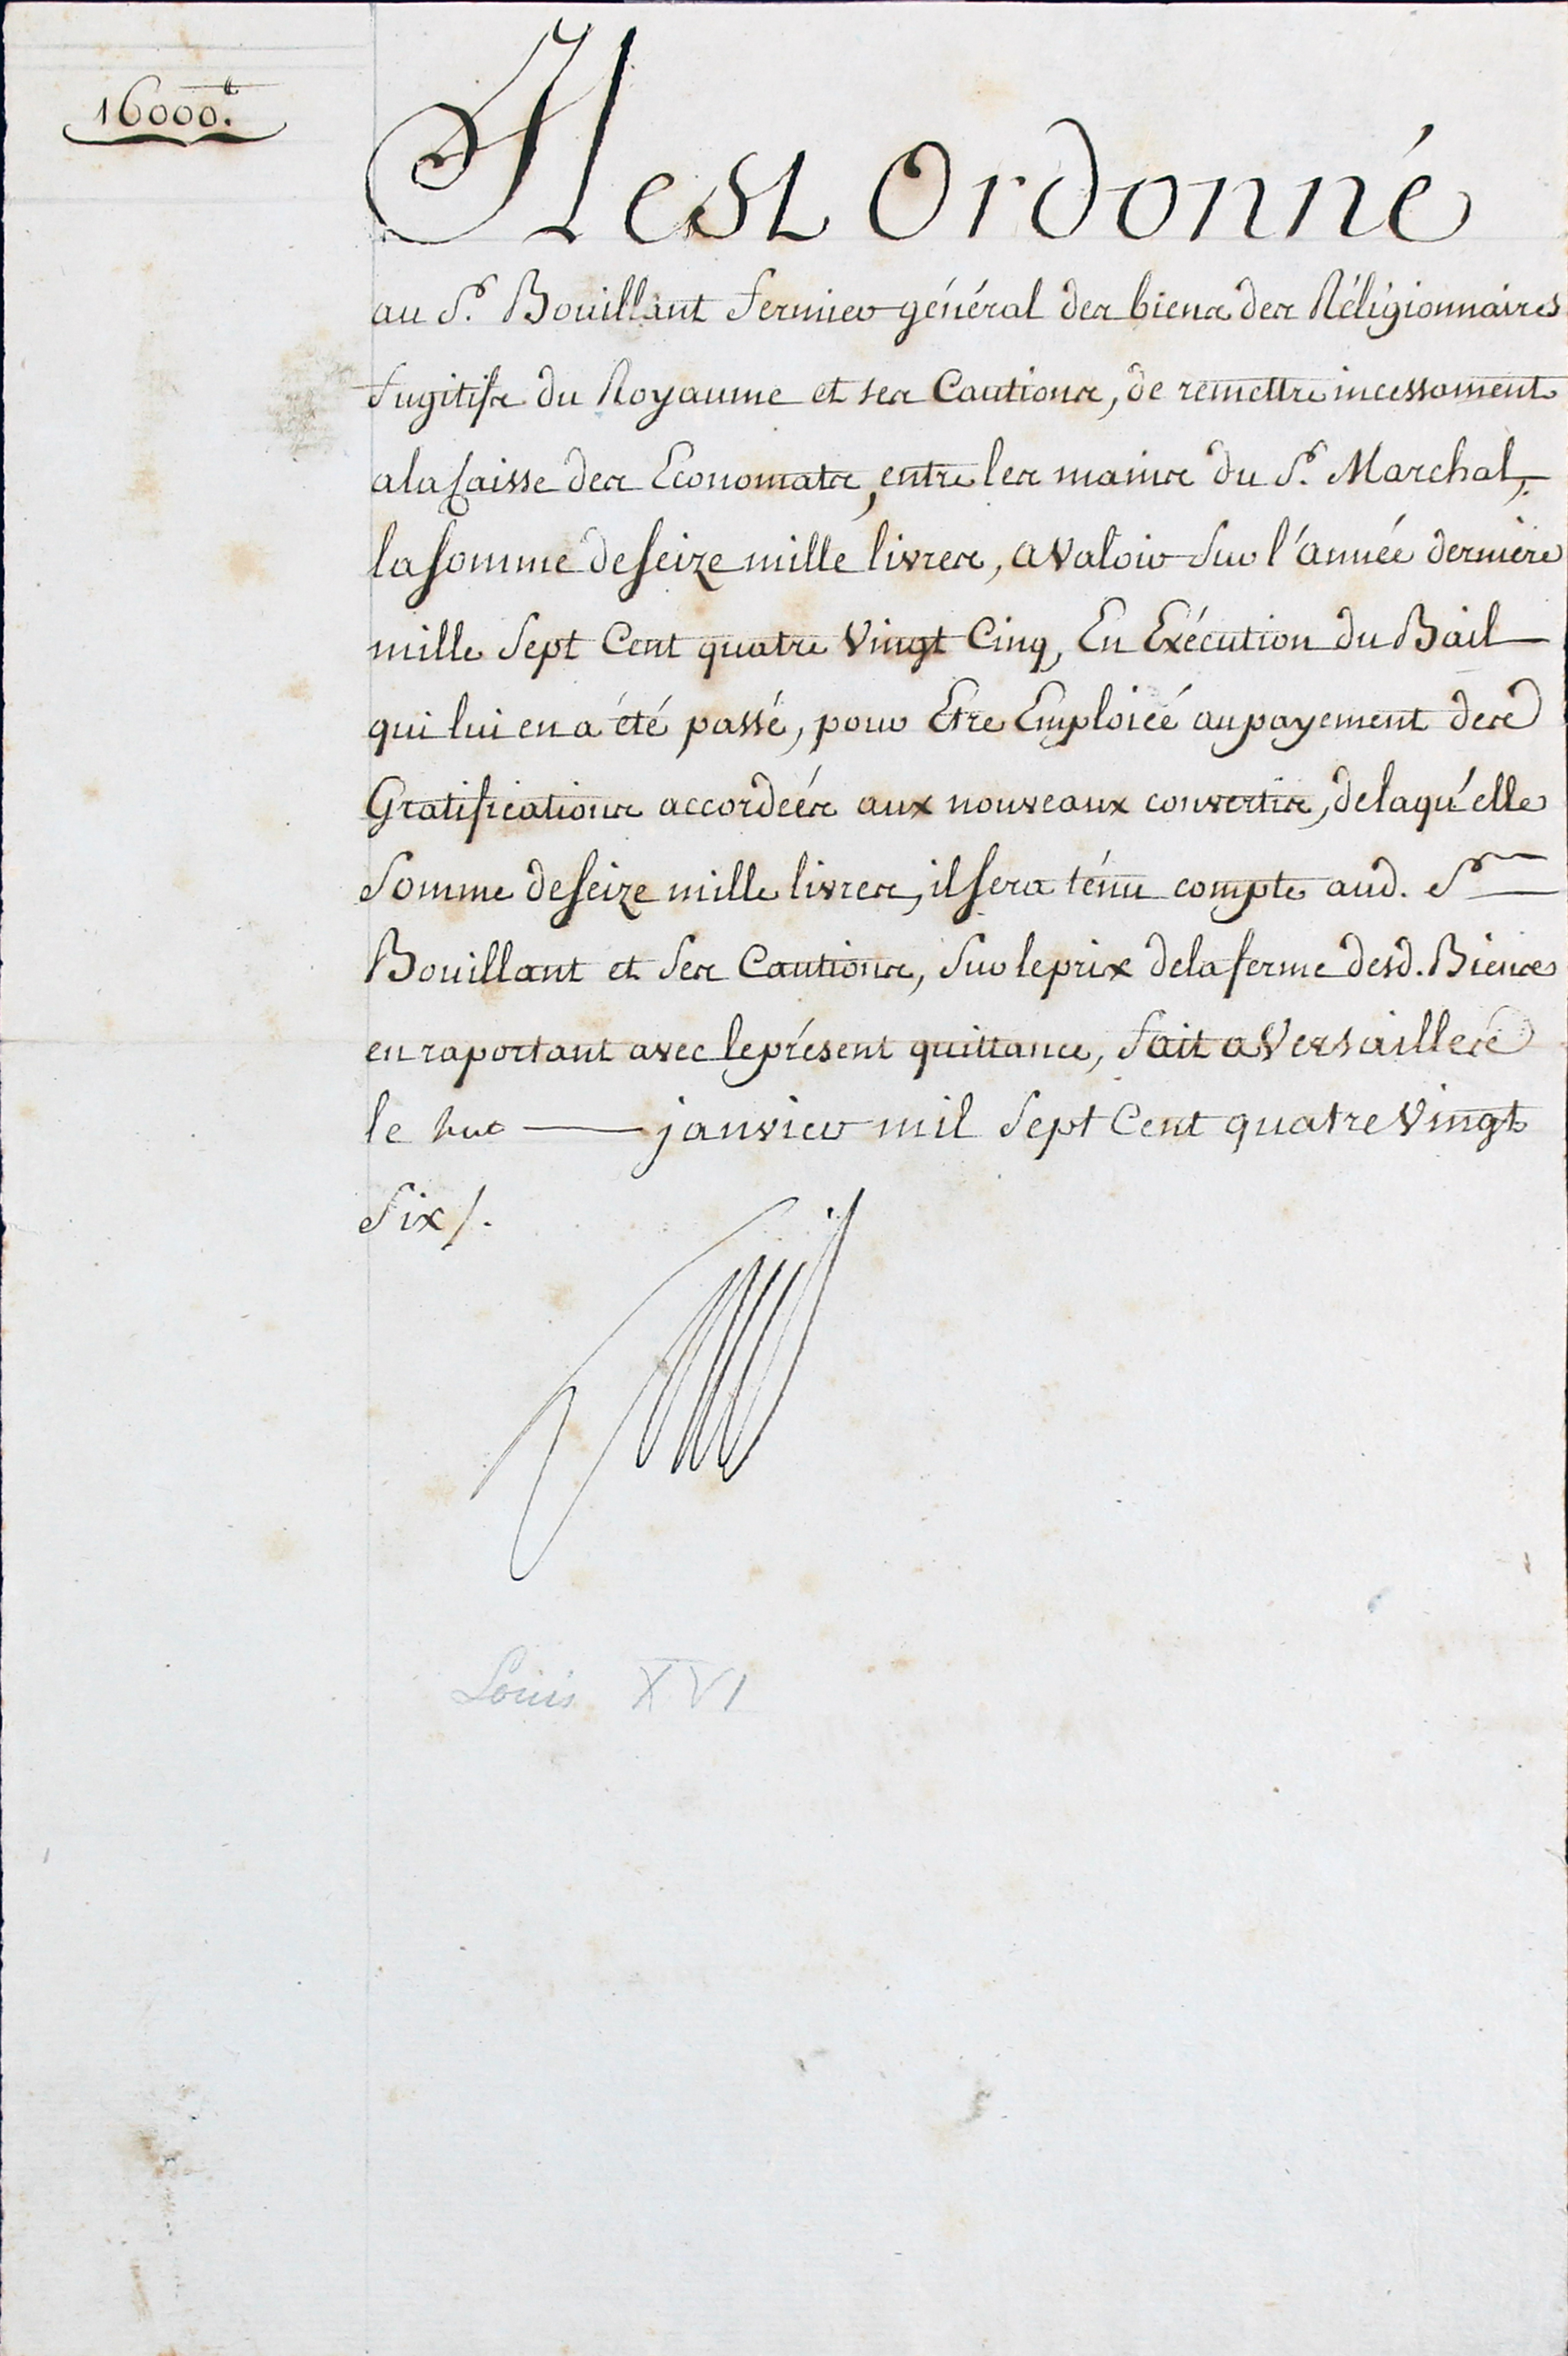 16000.lt
Il est Ordonné
au Sr. Bouillant fermier général des biens des Réligionnaires
fugitifs du Royaume et ses Cautions, de remettre incessament
a la Caisse des Economats, entre les mains du Sr. Marchal,
la somme de seize mille livres, a valoir sur l'année derniere
mille Sept Cent quatre Vingt Cinq, En Exécution du Bail
qui lui en a été passé, pour Etre Emploiée au payement des
Gratifications accordeés aux nouveaux convertis, de laqu'elle
Somme de seize mille livres, il sera ténu compte aud. Sr
Bouillant et Ses Cautions, sur le prix de la ferme desd. Biens
en raportant avec le présent quittance, fait a Versailles
le janvier mil Sept Cent quatre Vingt
Six /.
Louis XVI